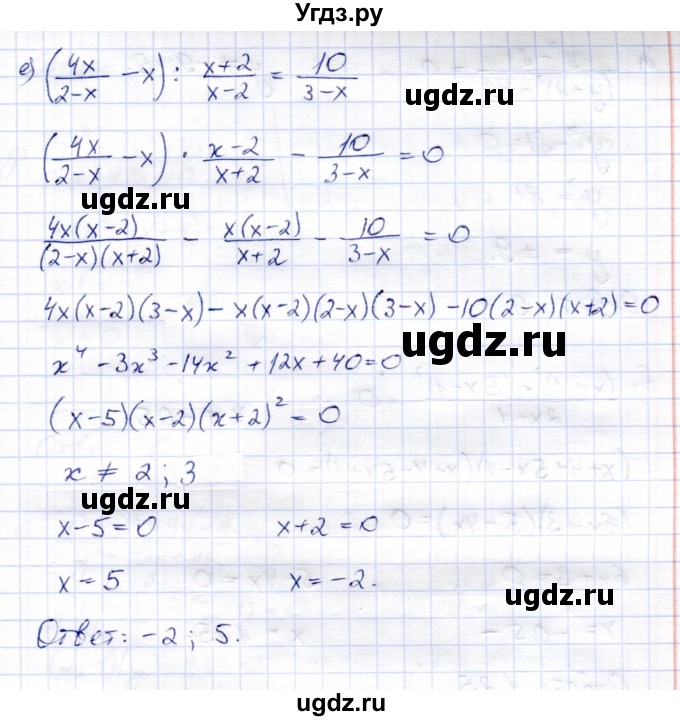 Угдз.ру
е) (4x/(2-x) - x) : (x+2)/(x-2) = 10/(3-x)
ugdz.ru
(4x/(2-x) - x) · (x-2)/(x+2) - 10/(3-x) = 0
ugdz.ru ugdz.ru
4x(x-2)/((2-x)(x+2)) - x(x-2)/(x+2) - 10/(3-x) = 0
4x(x-2)(3-x) - x(x-2)(2-x)(3-x) - 10(2-x)(x+2) = 0
ugdz.ru
x⁴ - 3x³ - 14x² + 12x + 40 = 0
(x-5)(x-2)(x+2)² = 0
x ≠ 2; 3
ugdz.ru
x-5=0 x+2=0
x=5 x=-2.
ugdz.ru
Ответ: -2; 5.
ugdz.ru
ugdz.ru